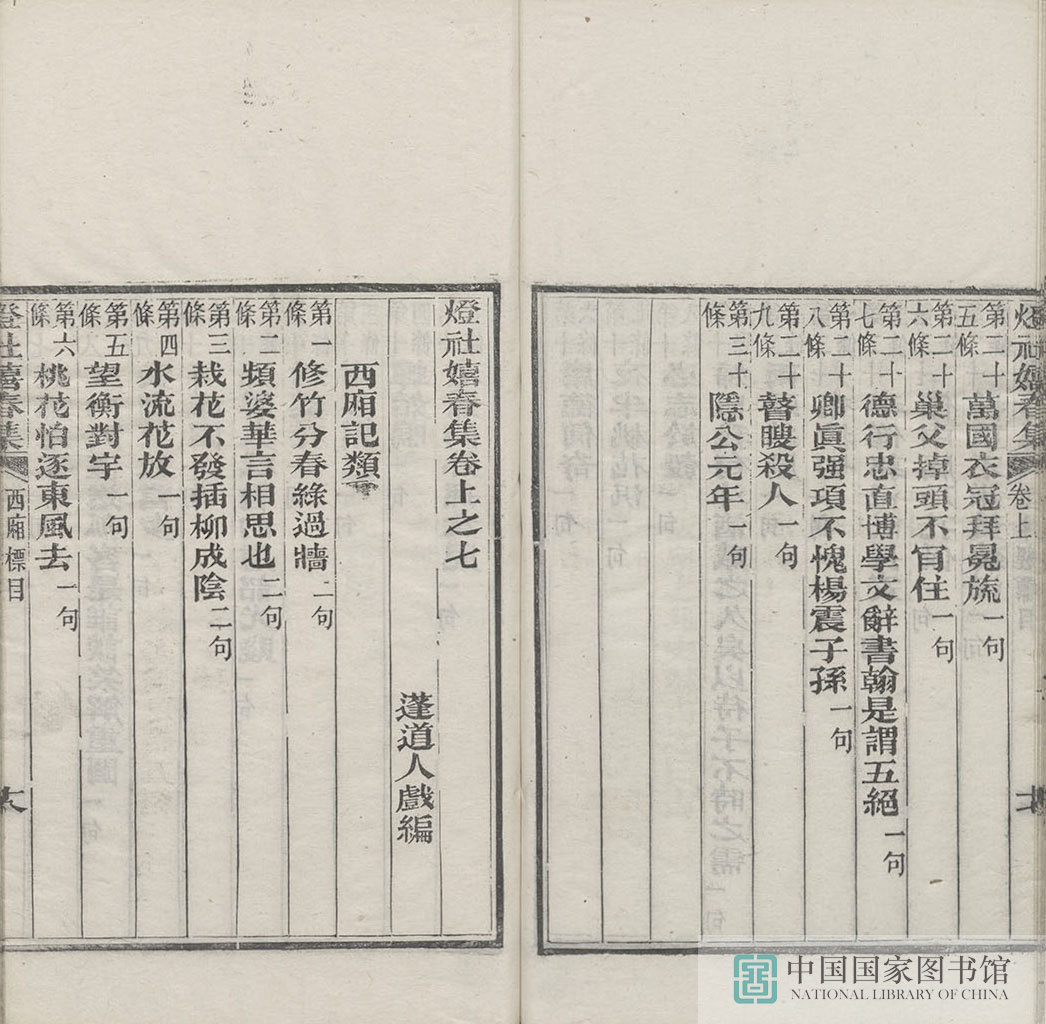 燈社嬉春集 卷上
第二十五條 萬國衣冠拜冕旒 一句
第二十六條 巢父掉頭不肯住 一句
第二十七條 德行忠直博學文辭書翰是謂五絕 一句
第二十八條 卿眞强項不愧楊震子孫 一句
第二十九條 瞽瞍殺人 一句
第三十條 隱公元年 一句
燈社嬉春集卷上之七
蓬道人戲編
西廂記類
第一條 修竹分春綠過牆 二句
第二條 頻婆華言相思也 二句
第三條 栽花不發插柳成陰 二句
第四條 水流花放 一句
第五條 望衡對宇 一句
第六條 桃花怕逐東風去 一句
燈社嬉春集 西廂標目
中国国家图书馆
NATIONAL LIBRARY OF CHINA